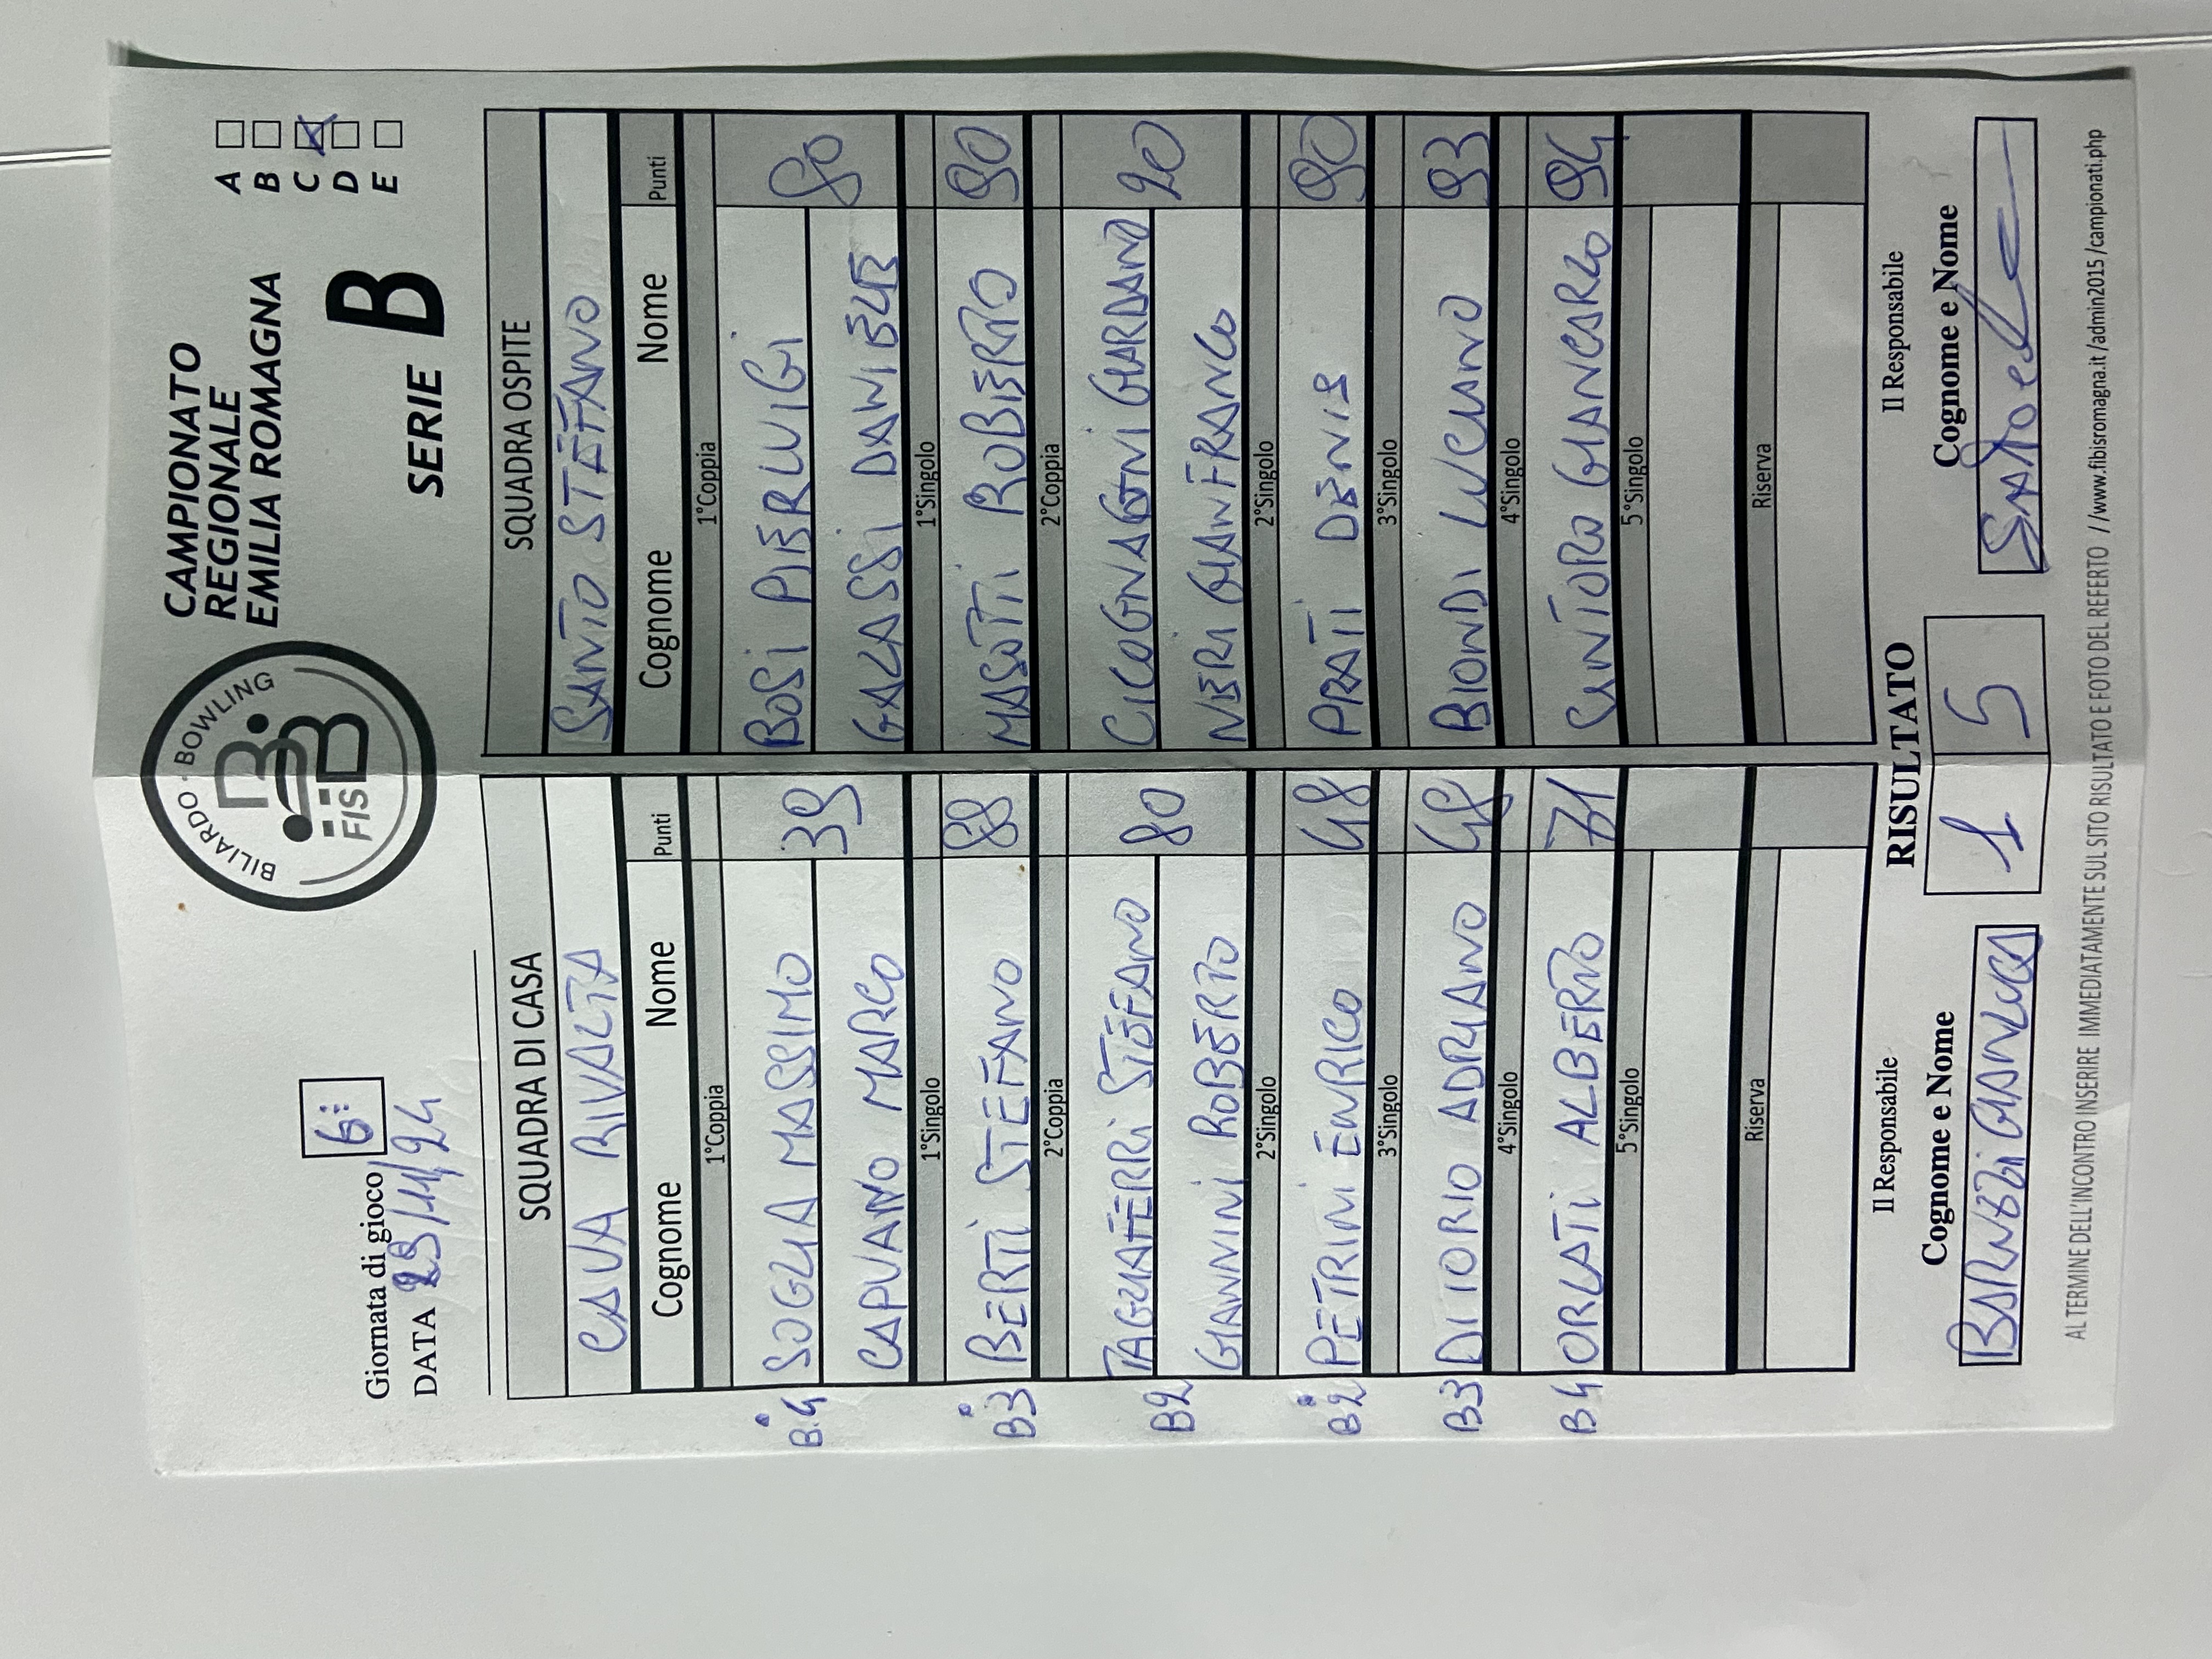 BILIARDO · BOWLING
FISBB
CAMPIONATO
REGIONALE
EMILIA ROMAGNA
SERIE B
A
B
C
D
E
Giornata di gioco 6:
DATA 29/11/24
SQUADRA DI CASA SQUADRA OSPITE
CAVA RIVALTA SANTO STEFANO
Cognome Nome Punti Cognome Nome Punti
1°Coppia 1°Coppia
B.4 SOGLIA MASSIMO 39 BOSI PIERLUIGI 80
CAPUANO MARCO GALASSI DANIELE
1°Singolo 1°Singolo
B3 BERTI STEFANO 88 MASOTTI ROBERTO 90
2°Coppia 2°Coppia
B2 TAGLIAFERRI STEFANO 80 CICOGNAGNI GIARDANO 20
GIANNINI ROBERTO NERI GIANFRANCO
2°Singolo 2°Singolo
B2 PETRINI ENRICO 48 PRATI DENIS 90
3°Singolo 3°Singolo
B3 DITTORIO ADRIANO 48 BIONDI LUCIANO 93
4°Singolo 4°Singolo
B4 ORLATI ALBERTO 71 SANTORO GIANCARLO 94
5°Singolo 5°Singolo
Riserva Riserva
Il Responsabile RISULTATO Il Responsabile
Cognome e Nome 1 5 Cognome e Nome
BARUZZI GIANLUCA
AL TERMINE DELL'INCONTRO INSERIRE IMMEDIATAMENTE SUL SITO RISULTATO E FOTO DEL REFERTO //www.fibisromagna.it /admin2015 /campionati.php